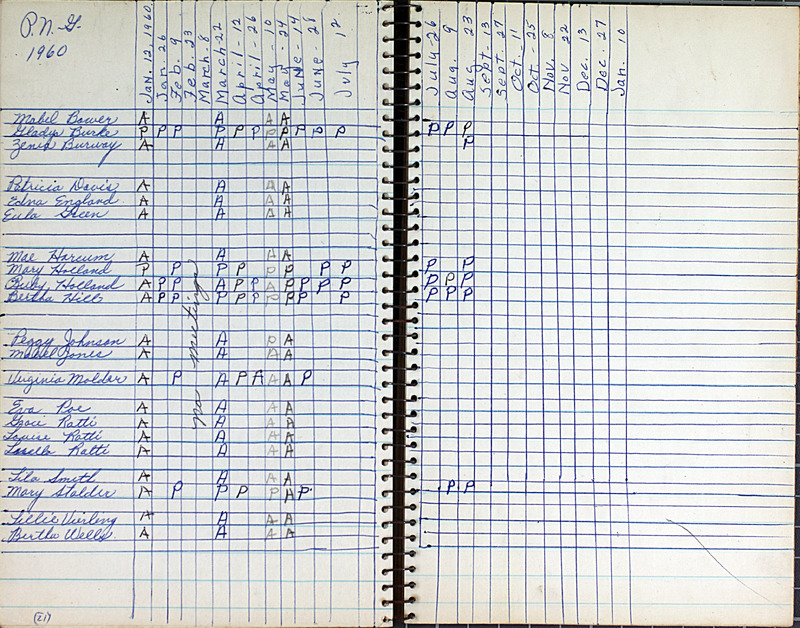 P.N.G.
1960
Jan. 12, 1960
Jan. 26
Feb. 9
Feb. 23
March. 8
March-22
April-12
April-26
May-10
May-24
June-14
June-28
July 12
July-26
Aug. 9
Aug 23
Sept. 13
Sept. 27
Oct. 11
Oct. 25
Nov. 8
Nov 22
Dec. 13
Dec. 27
Jan. 10
Mabel Bower A A A A
Gladys Burke P P P P P P P P P P P P P P
Zenia Burway A A A A P
Patricia Davis A A A A
Edna England A A A A
Eula Green A A A A
Mae Harcum A A A A
Mary Holland P P P P P P P P P P
Ruby Holland A P P A P P P P P P P P P P
Bertha Hills A P P P P P P P P P P P P
no meetings
Peggy Johnson A A P A
Mabel Jones A A A A
Virginia Molder A P A P A A A P
Eva Poe A A A A
Ratti A A A A
Louise Ratti A A A A
Ratti A A A A
Lila Smith A A A A
Mary Stalder A P P P P A P P P
Lillie Vierling A A A A
Bertha Wells A A A A
(21)